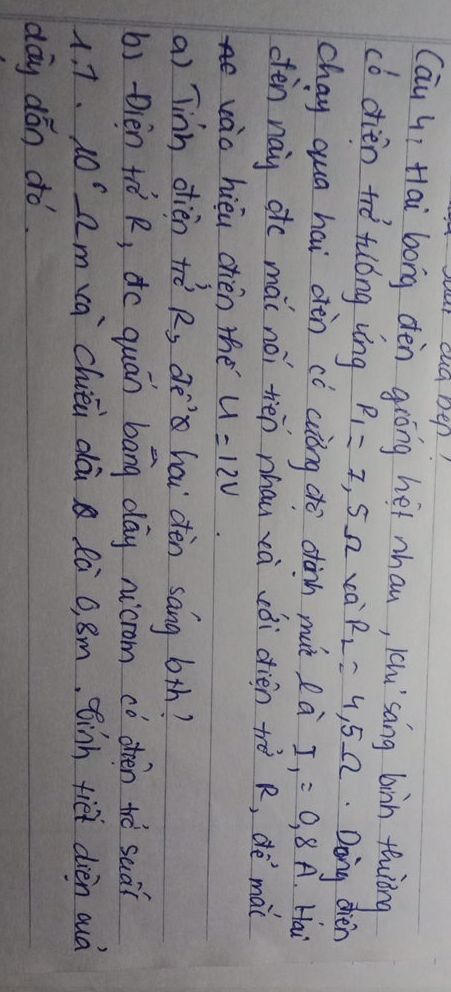 dưa bếp!
Câu 4: Hai bóng đèn giống hệt nhau, khi sáng bình thường
có điện trở tương ứng R₁ = 7,5 Ω và R₂ = 4,5 Ω. Dòng điện
chạy qua hai đèn có cường độ định mức là I, = 0,8 A. Hai
đèn này đc mắc nối tiếp nhau và với điện trở R, để mắc
vào hiệu điện thế U = 12V.
a) Tính điện trở R, để hai đèn sáng bth?
b) Điện trở R, đc quấn bằng dây nicrom có điện trở suất
1,1 . 10⁶ Ωm và chiều dài là 0,8m. Tính tiết diện của
dây dẫn đó.